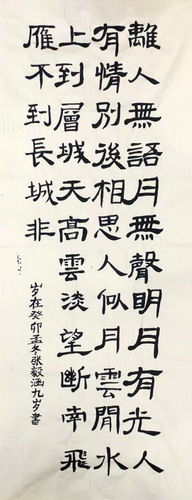 離人無語月無聲明月有光人
有情別後相思人似月雲閒水
上到層城天高雲淡望斷南飛
雁不到長城非
歲在癸卯孟冬張毅涵九岁書